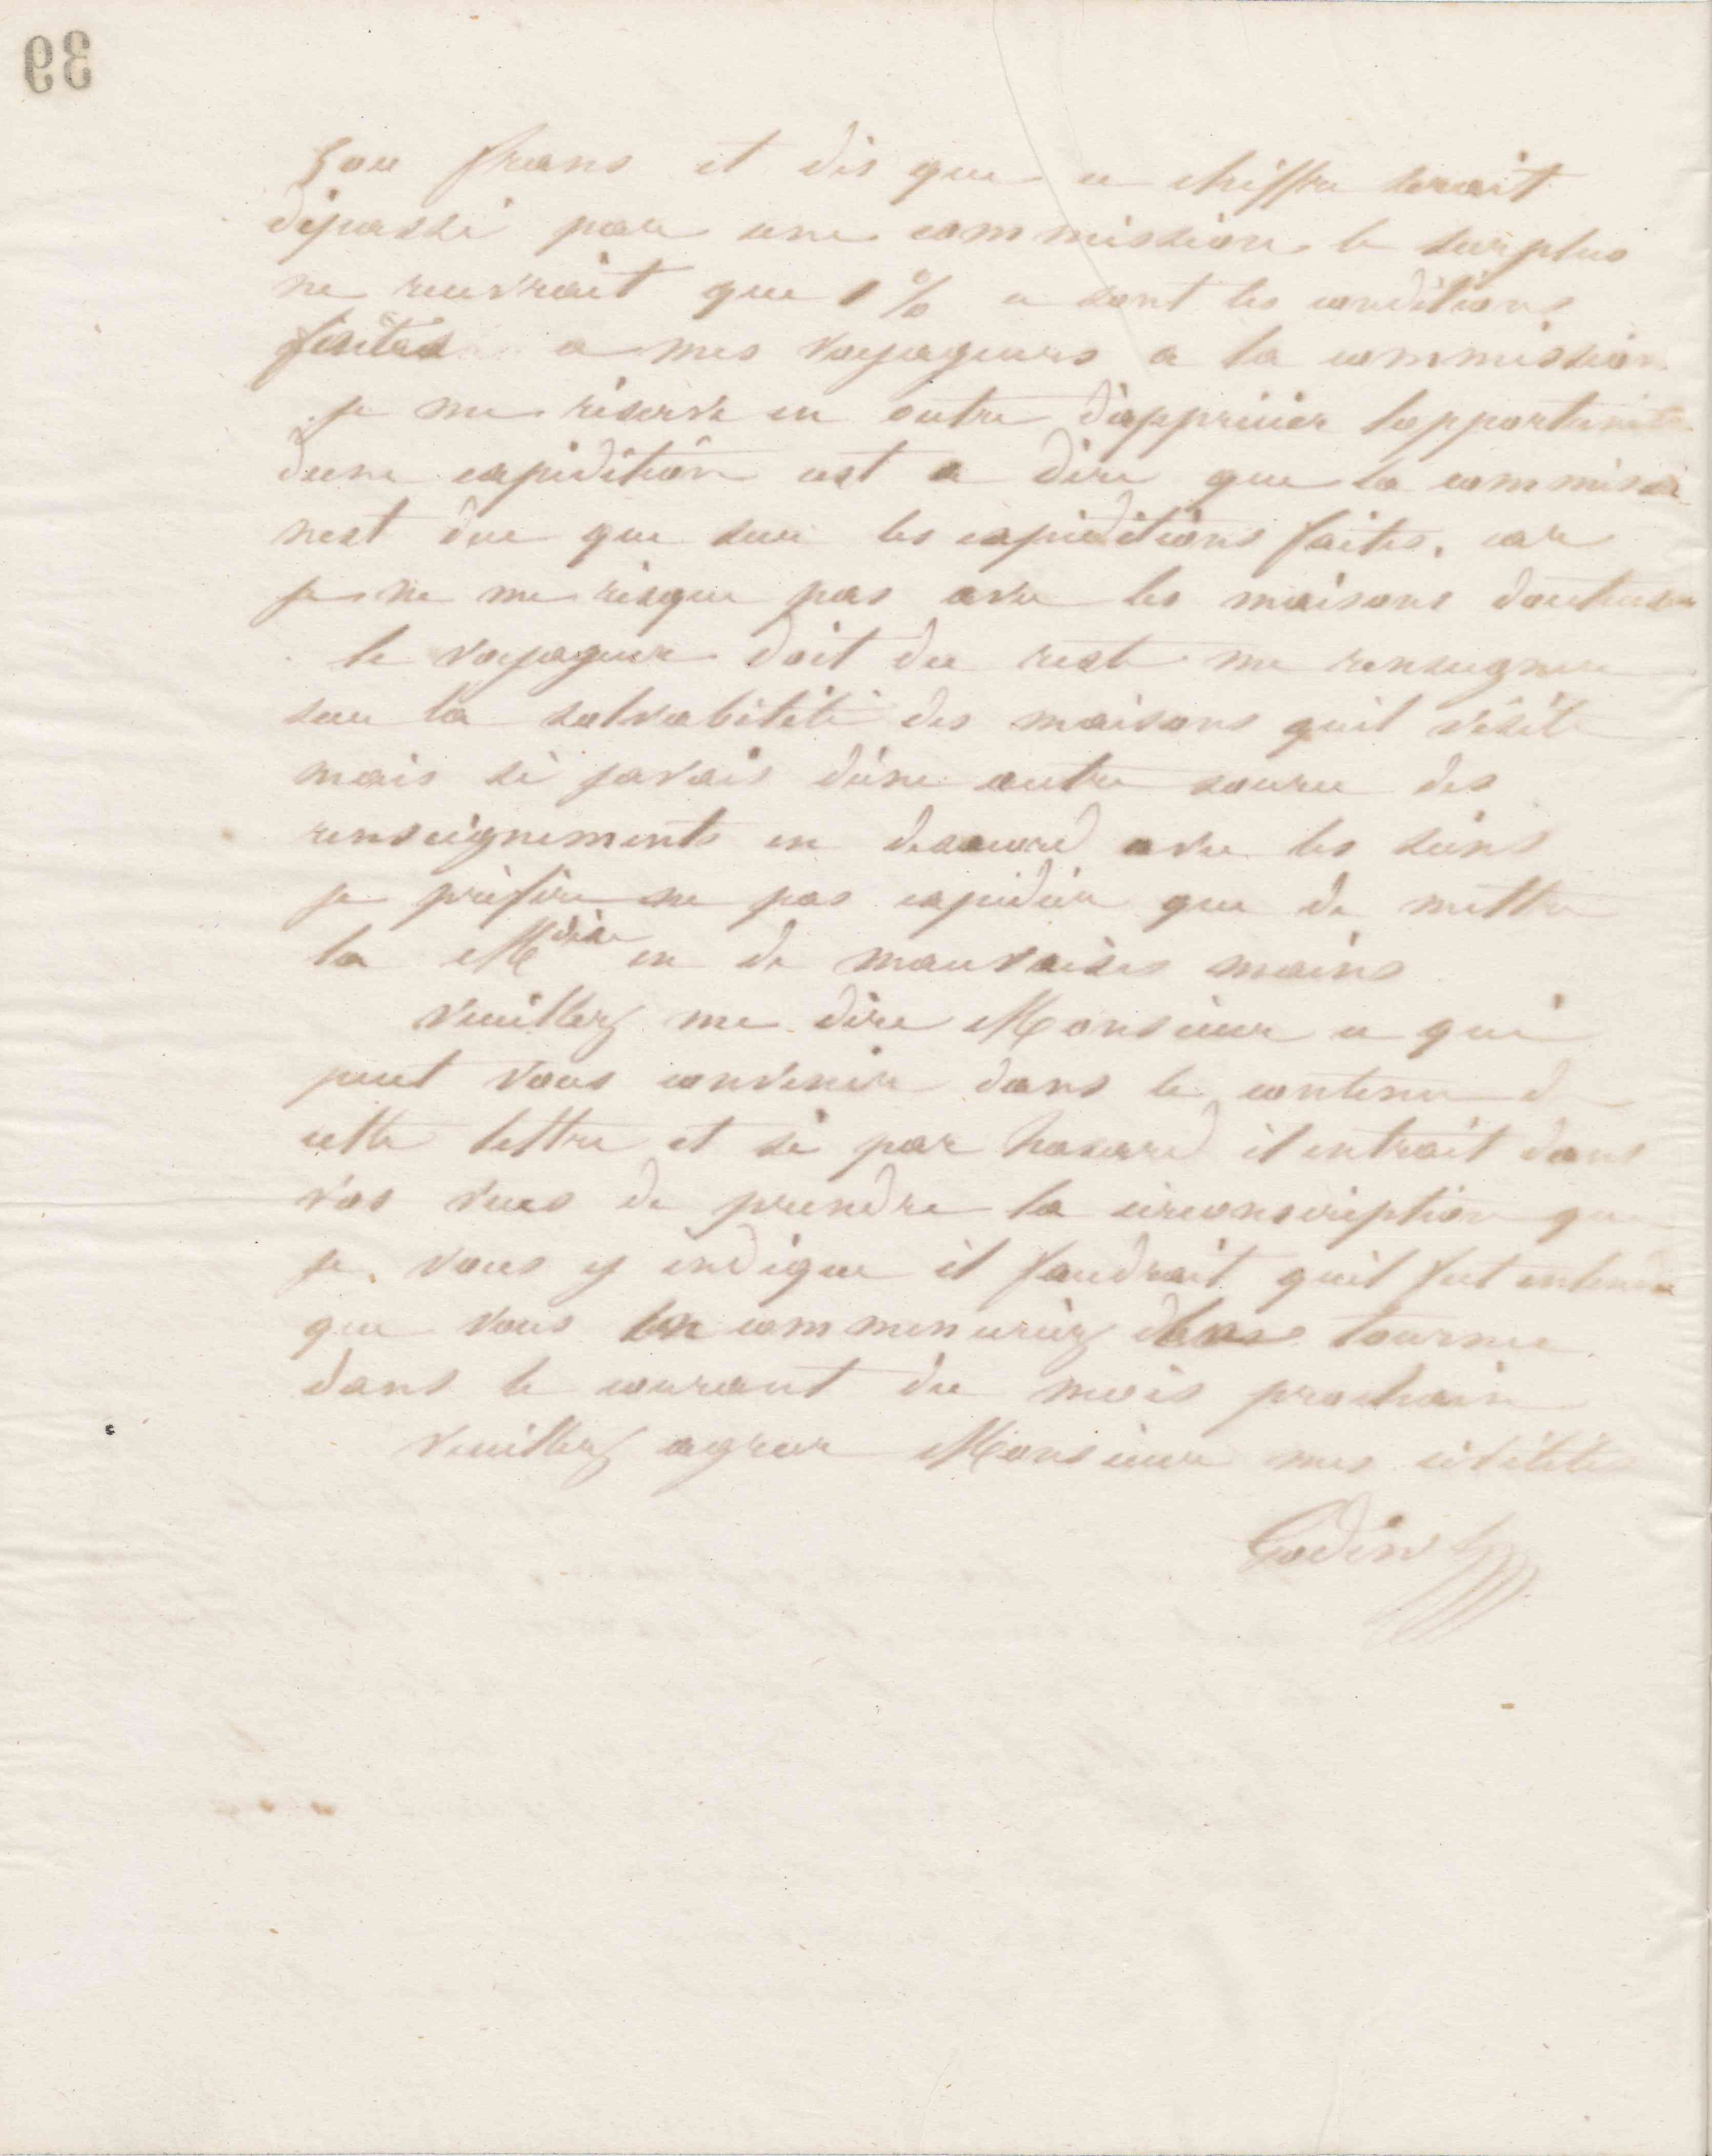 39
500 frans et dis que ce chiffre serait
dépassé par une commission le surplus
ne recevrait que 1 % ce sont les conditions
faites a mes voyageurs a la commission
je me réserve en outre d'apprécier lopportunité
dune expédition cest a dire que la commission
nest due que sur les expéditions faites, car
je ne me risque pas avec les maisons douteuses
le voyageur doit du reste me renseigner
sur la solvabilité des maisons quil visite
mais si javais dune autre source des
renseignements en desacord avec les siens
je préfère ne pas expédier que de mettre
la Mdise en de mauvaises mains
veuillez me dire Monsieur ce qui
peut vous convenir dans le contenu de
cette lettre et si par hasard il entrait dans
vos vues de prendre la circonscription que
je vous y indique il faudrait quil fut entendu
que vous commenceriez tournee
dans le courant du mois prochain
veuillez agreer Monsieur mes civilités
Godin